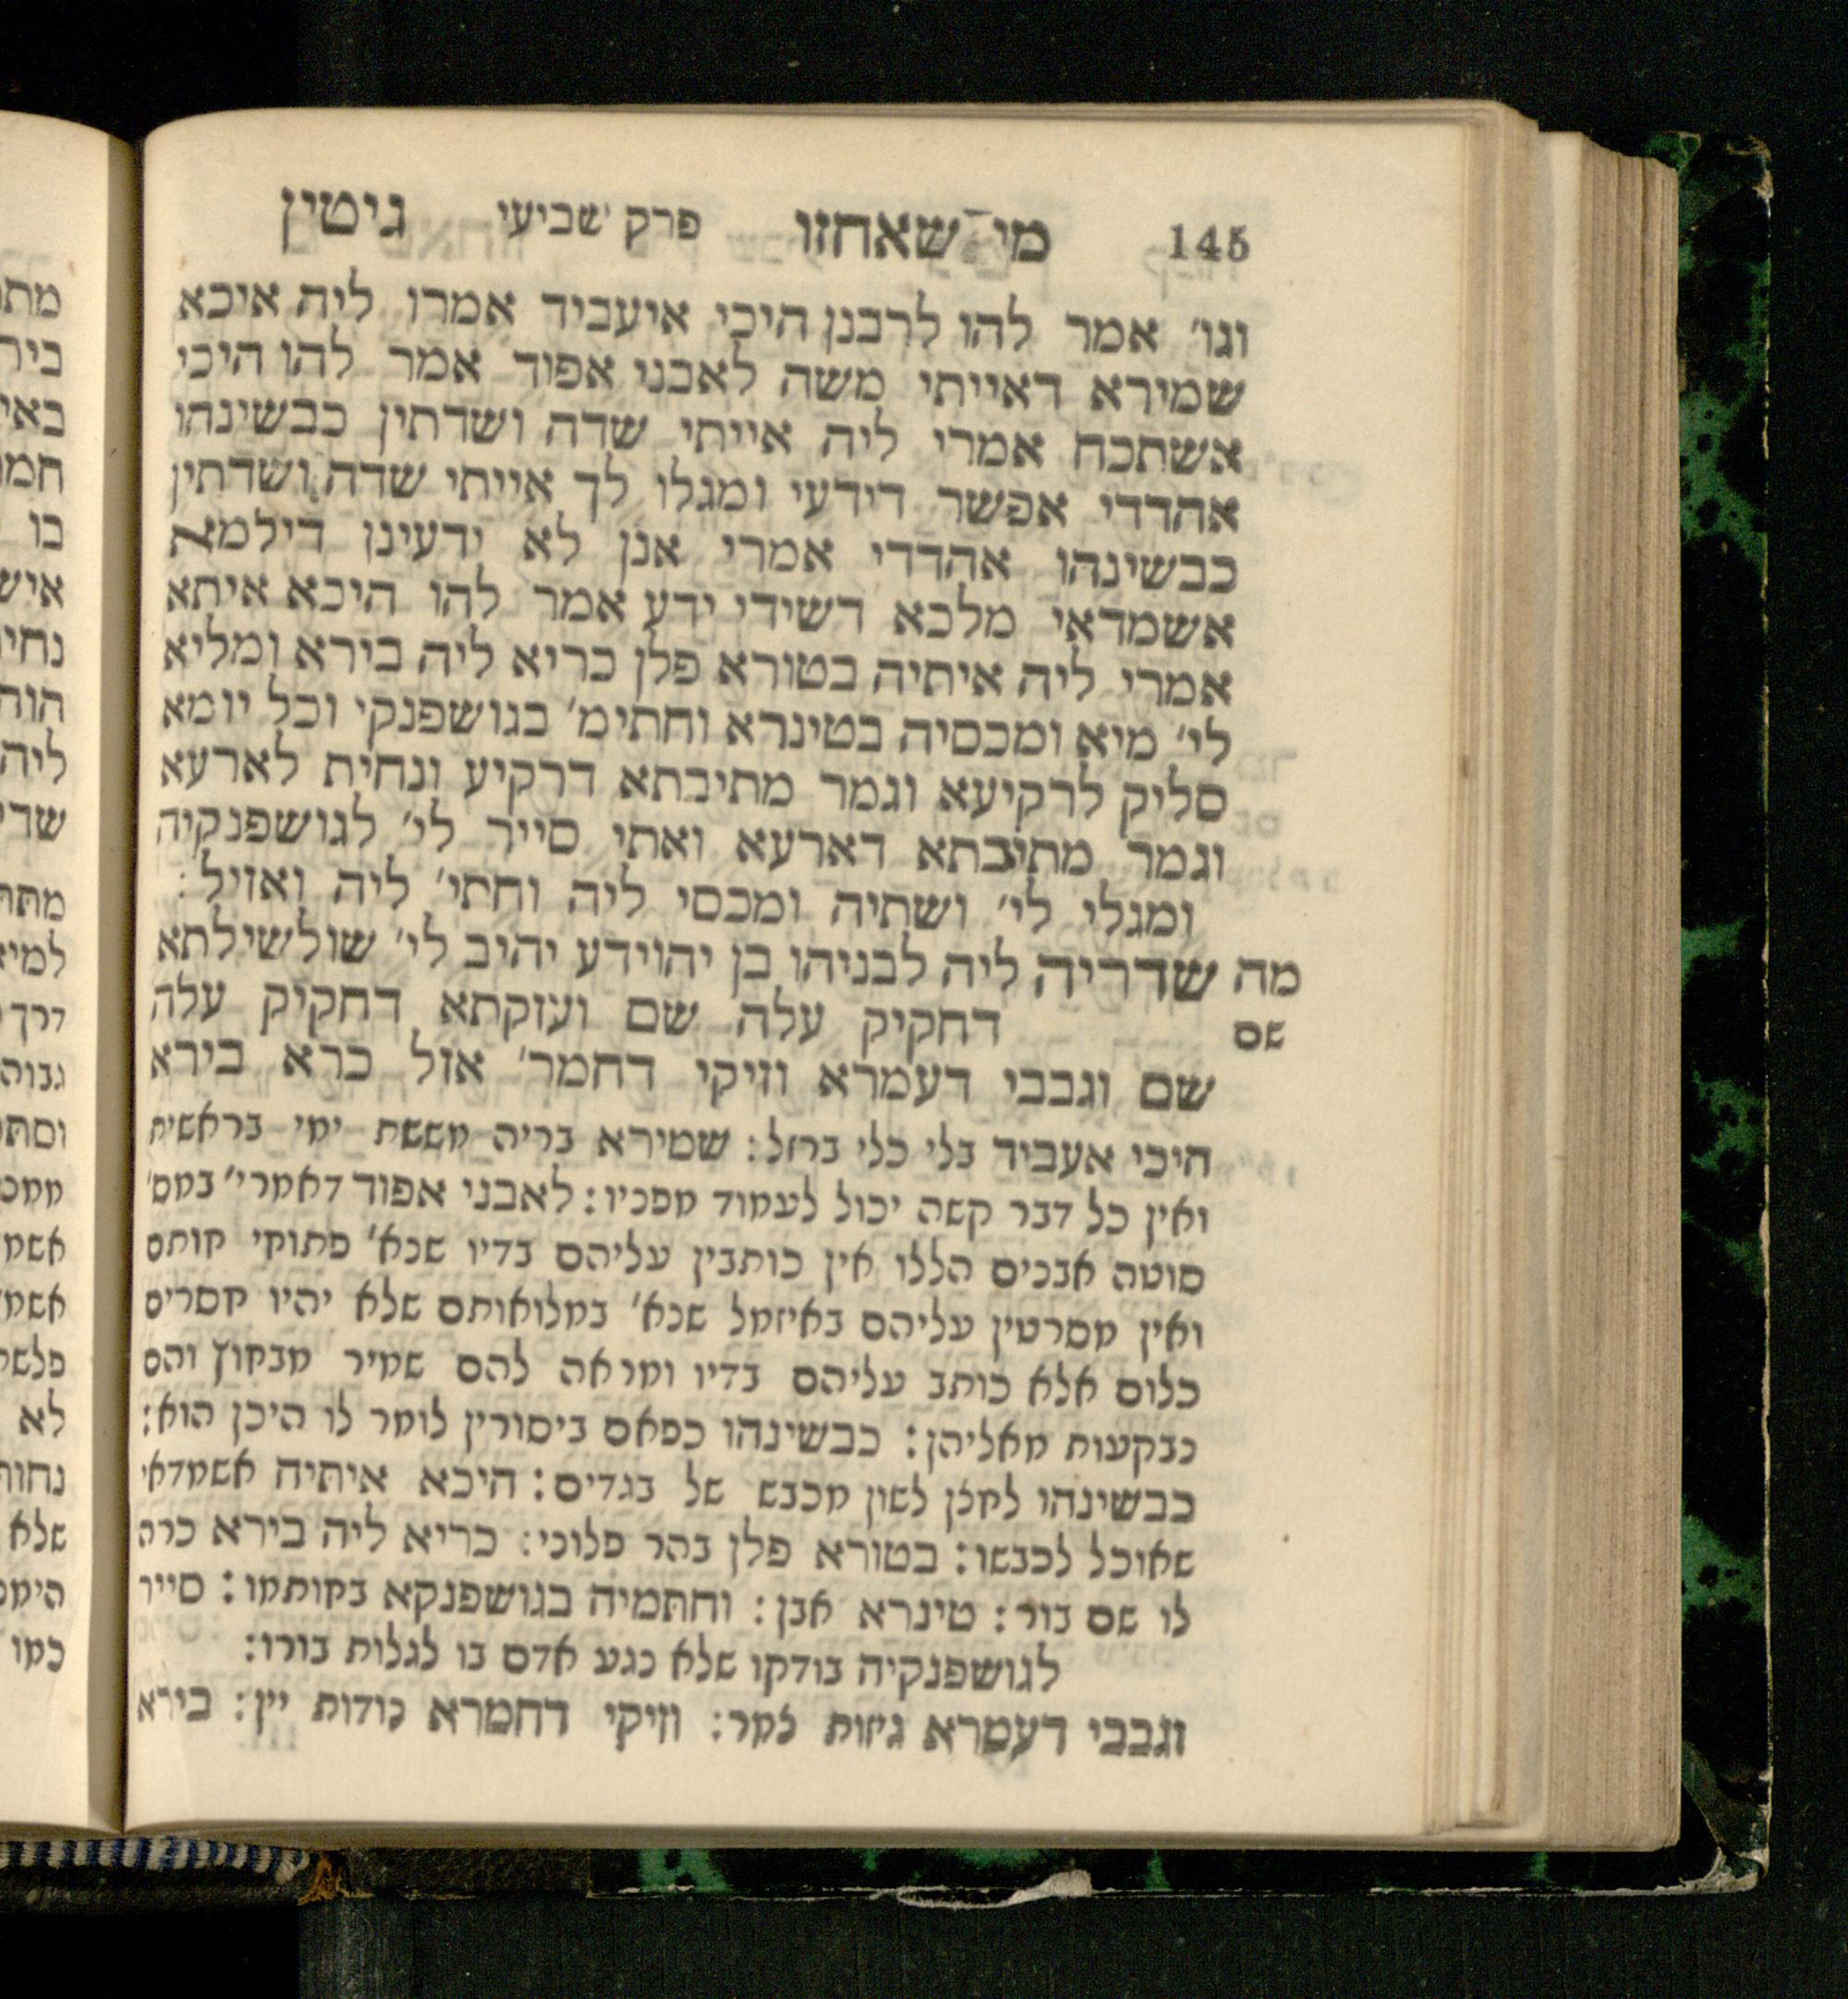 145 מי שאחזו פרק שביעי גיטין
וגו׳ אמר להו לרבנן היכי איעביד אמרו ליה איכא
שמירא דאייתי משה לאבני אפוד אמר להו היכי
אשתכח אמרי ליה אייתי שדה ושדתין כבשינהו
אהדדי אפשר דידעי ומגלו לך אייתי שדה ושדתין
כבשינהו אהדדי אמרי אנן לא ידעינן דילמא
אשמדאי מלכא דשידי ידע אמר להו היכא איתא
אמרי ליה איתיה בטורא פלן כריא ליה בירא ומליא
לי׳ מיא ומכסיה בטינרא וחתימ׳ בגושפנקי וכל יומא
סליק לרקיעא וגמר מתיבתא דרקיע ונחית לארעא
וגמר מתיבתא דארעא ואתי סייר לי׳ לגושפנקיה
ומגלי לי׳ ושתיה ומכסי ליה וחתי׳ ליה ואזיל:
מה שדריה ליה לבניהו בן יהוידע יהיב לי׳ שולשילתא
שם דחקיק עלה שם ועזקתא דחקיק עלה
שם וגבבי דעמרא וזיקי דחמר׳ אזל כרא בירא
היכי אעביד בלי כלי ברזל: שמירא בריה מששת ימי בראשית
ואין כל דבר קשה יכול לעמוד מפניו: לאבני אפוד דאמרי׳ במס׳
סוטה אבנים הללו אין כותבין עליהם בדיו שנא׳ פתוחי חותם
ואין מסרטין עליהם באיזמל שנא׳ במלואותם שלא יהיו חסרים
כלום אלא כותב עליהם בדיו ומראה להם שמיר מבחוץ והם
נבקעות מאליהן: כבשינהו כפאם ביסורין לומר לו היכן הוא:
כבשינהו לחלן לשון מכבש של בגדים: היכא איתיה אשמדאי
שאוכל לכבשו: בטורא פלן בהר פלוני: כריא ליה בירא כרה
לו שם בור: טינרא אבן: וחתמיה בגושפנקא בחותמו: סייר
לגושפנקיה בודקו שלא נגע אדם בו לגלות בורו:
וגבבי דעמרא גיזות למר: וזיקי דחמרא נודות יין: בירא